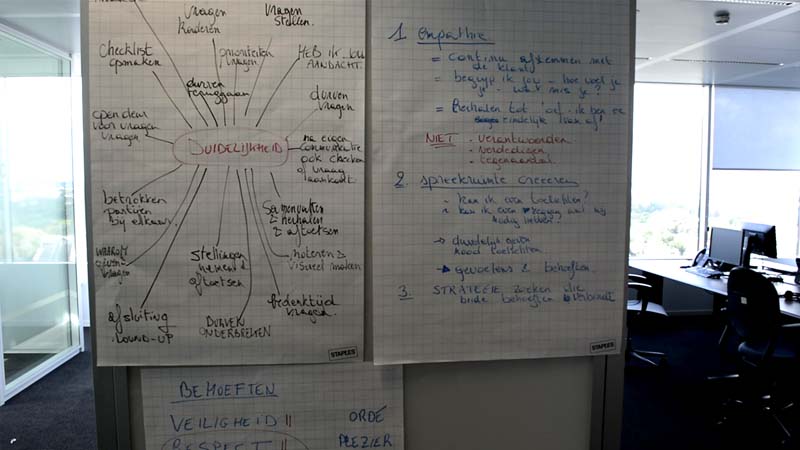 vragen
kinderen
vragen
stellen.
checklist
opmaken
prioriteiten
vragen
HEB IK JOU
AANDACHT.
durven
teruggaan
durven
vragen
open deur
voor vragen
DUIDELIJKHEID
na eigen
communicatie
ook checken
of vraag
aankomt.
betrokken
partijen
bij elkaar
Samenvatten
& herhalen
& aftoetsen
WAAROM
vragen
stellingen
nemen &
aftoetsen
noteren &
visueel maken
afsluiting
ROUND-UP
DURVEN
ONDERBREKEN
bedenktijd
vragen
STAPLES
1. empathie
= continu afstemmen met
de klant
= begrijp ik jou - hoe voel je
je - wat mis je?
= Herhalen tot 'oef' ik ben er
eindelijk van af
NIET - verantwoorden
- verdedigen
- tegenaanval
2. spreekruimte creëren
- kan ik even toelichten?
- kan ik even zeggen wat wij
nodig hebben?
→ duidelijk
nood toelichten
→ gevoelens & behoeften
3. STRATEGIE zoeken die
beide behoeften verbindt
STAPLES
BEHOEFTEN
VEILIGHEID ||
ORDE
RESPECT ||
PLEZIER